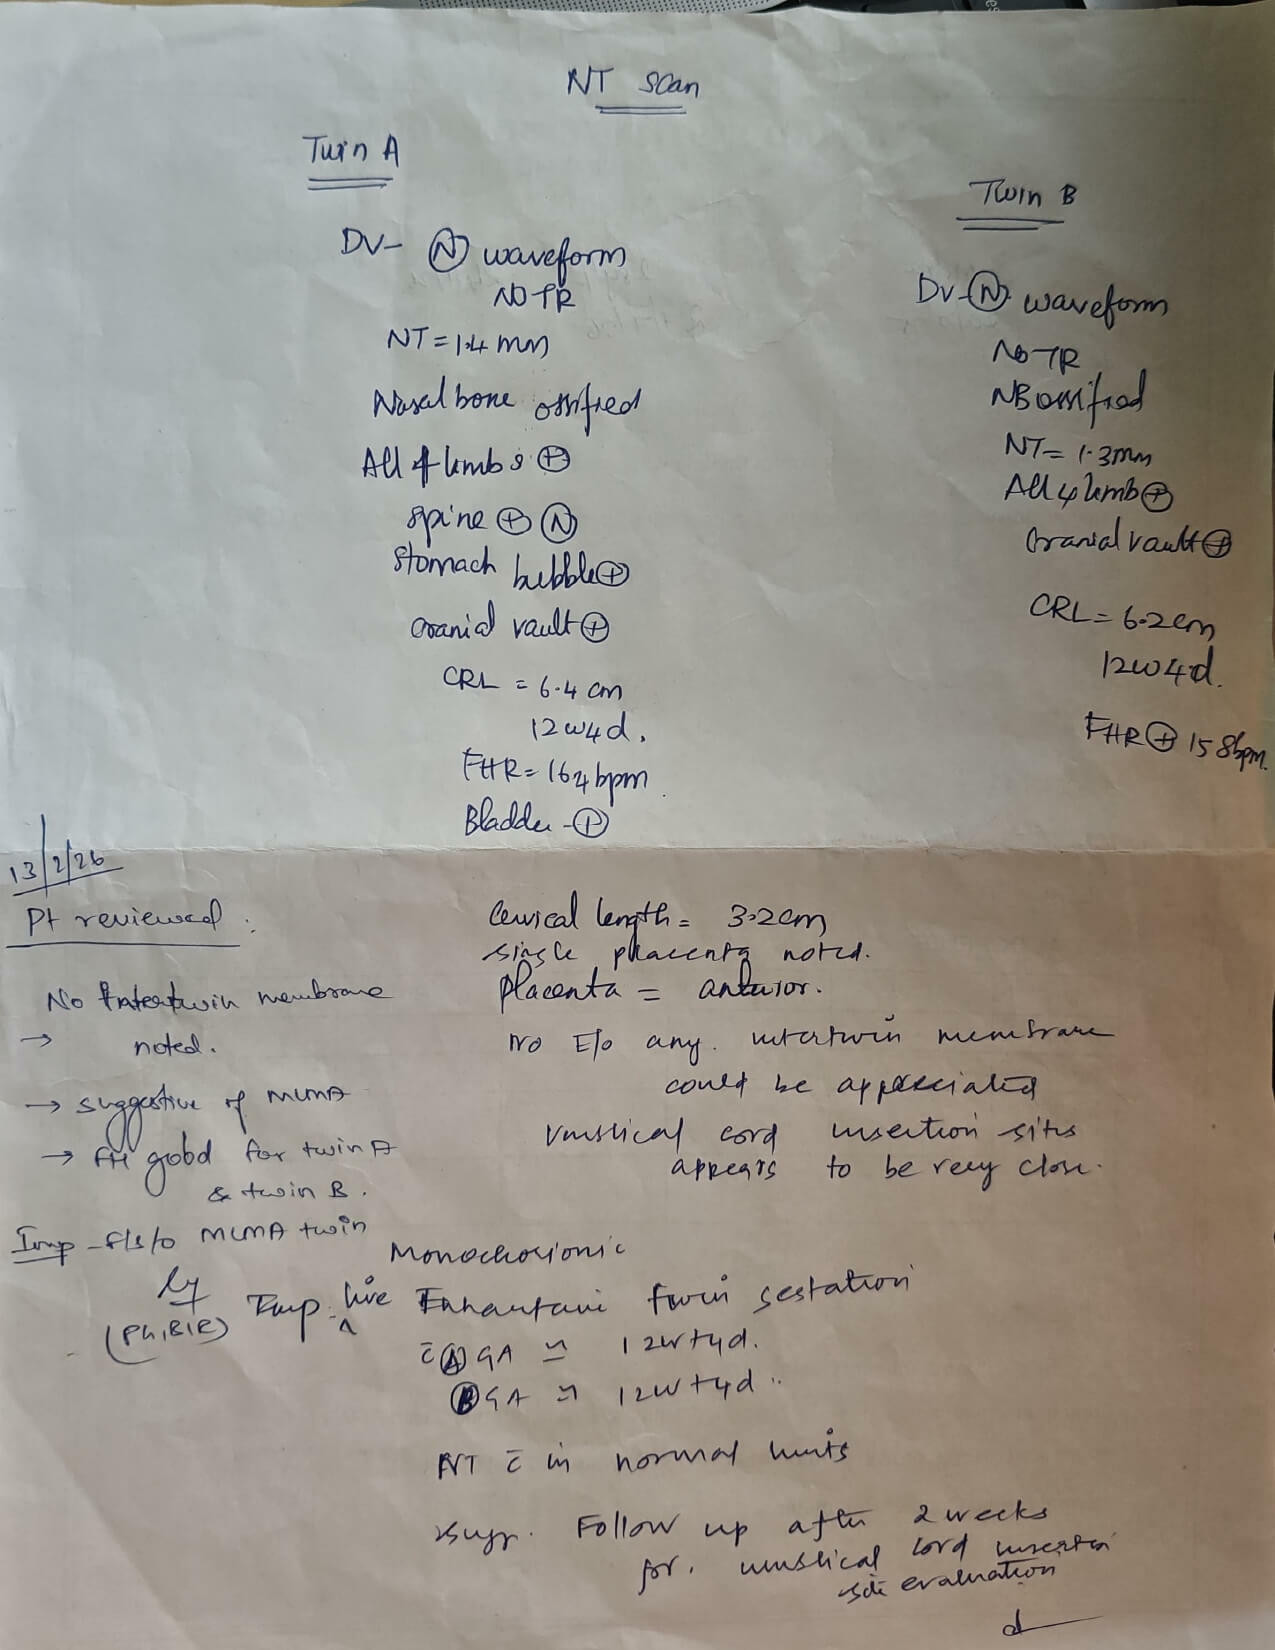 NT scan
Twin A
DV- Ⓝ waveform
NO TR
NT = 1.4 mm
Nasal bone ossified
All 4 limbs ⊕
spine ⊕ Ⓝ
stomach bubble ⊕
cranial vault ⊕
CRL = 6.4 cm
12w4d.
FHR = 164 bpm
Bladder - ⊕
Twin B
DV-Ⓝ waveform
No TR
NB ossified
NT = 1.3mm
All 4 limb ⊕
cranial vault ⊕
CRL = 6.2cm
12w4d.
FHR ⊕ 158bpm.
13/2/26
Pt reviewed.
No Intertwin membrane
→ noted.
→ suggestive of MCMA
→ FH good for twin A
& twin B.
Imp - f/s/o MCMA twin
Cervical length = 3.2cm
single placenta noted.
Placenta = anterior.
No E/o any intertwin membrane
could be appreciated
Umbilical cord insertion sites
appears to be very close.
Monochorionic
Imp. live twin gestation
c̄ Ⓐ GA ≃ 12w+4d.
Ⓑ GA ≃ 12w+4d.
NT c̄ in normal limits
Sugg. Follow up after 2 weeks
for umbilical cord insertion
site evaluation